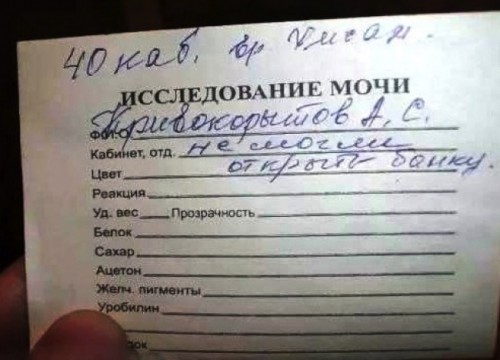 40 каб. вр
ИССЛЕДОВАНИЕ МОЧИ
Кривокорытов А. С.
Кабинет, отд. не могли
Цвет открыть банку.
Реакция
Уд. вес Прозрачность
Белок
Сахар
Ацетон
Желч. пигменты
Уробилин